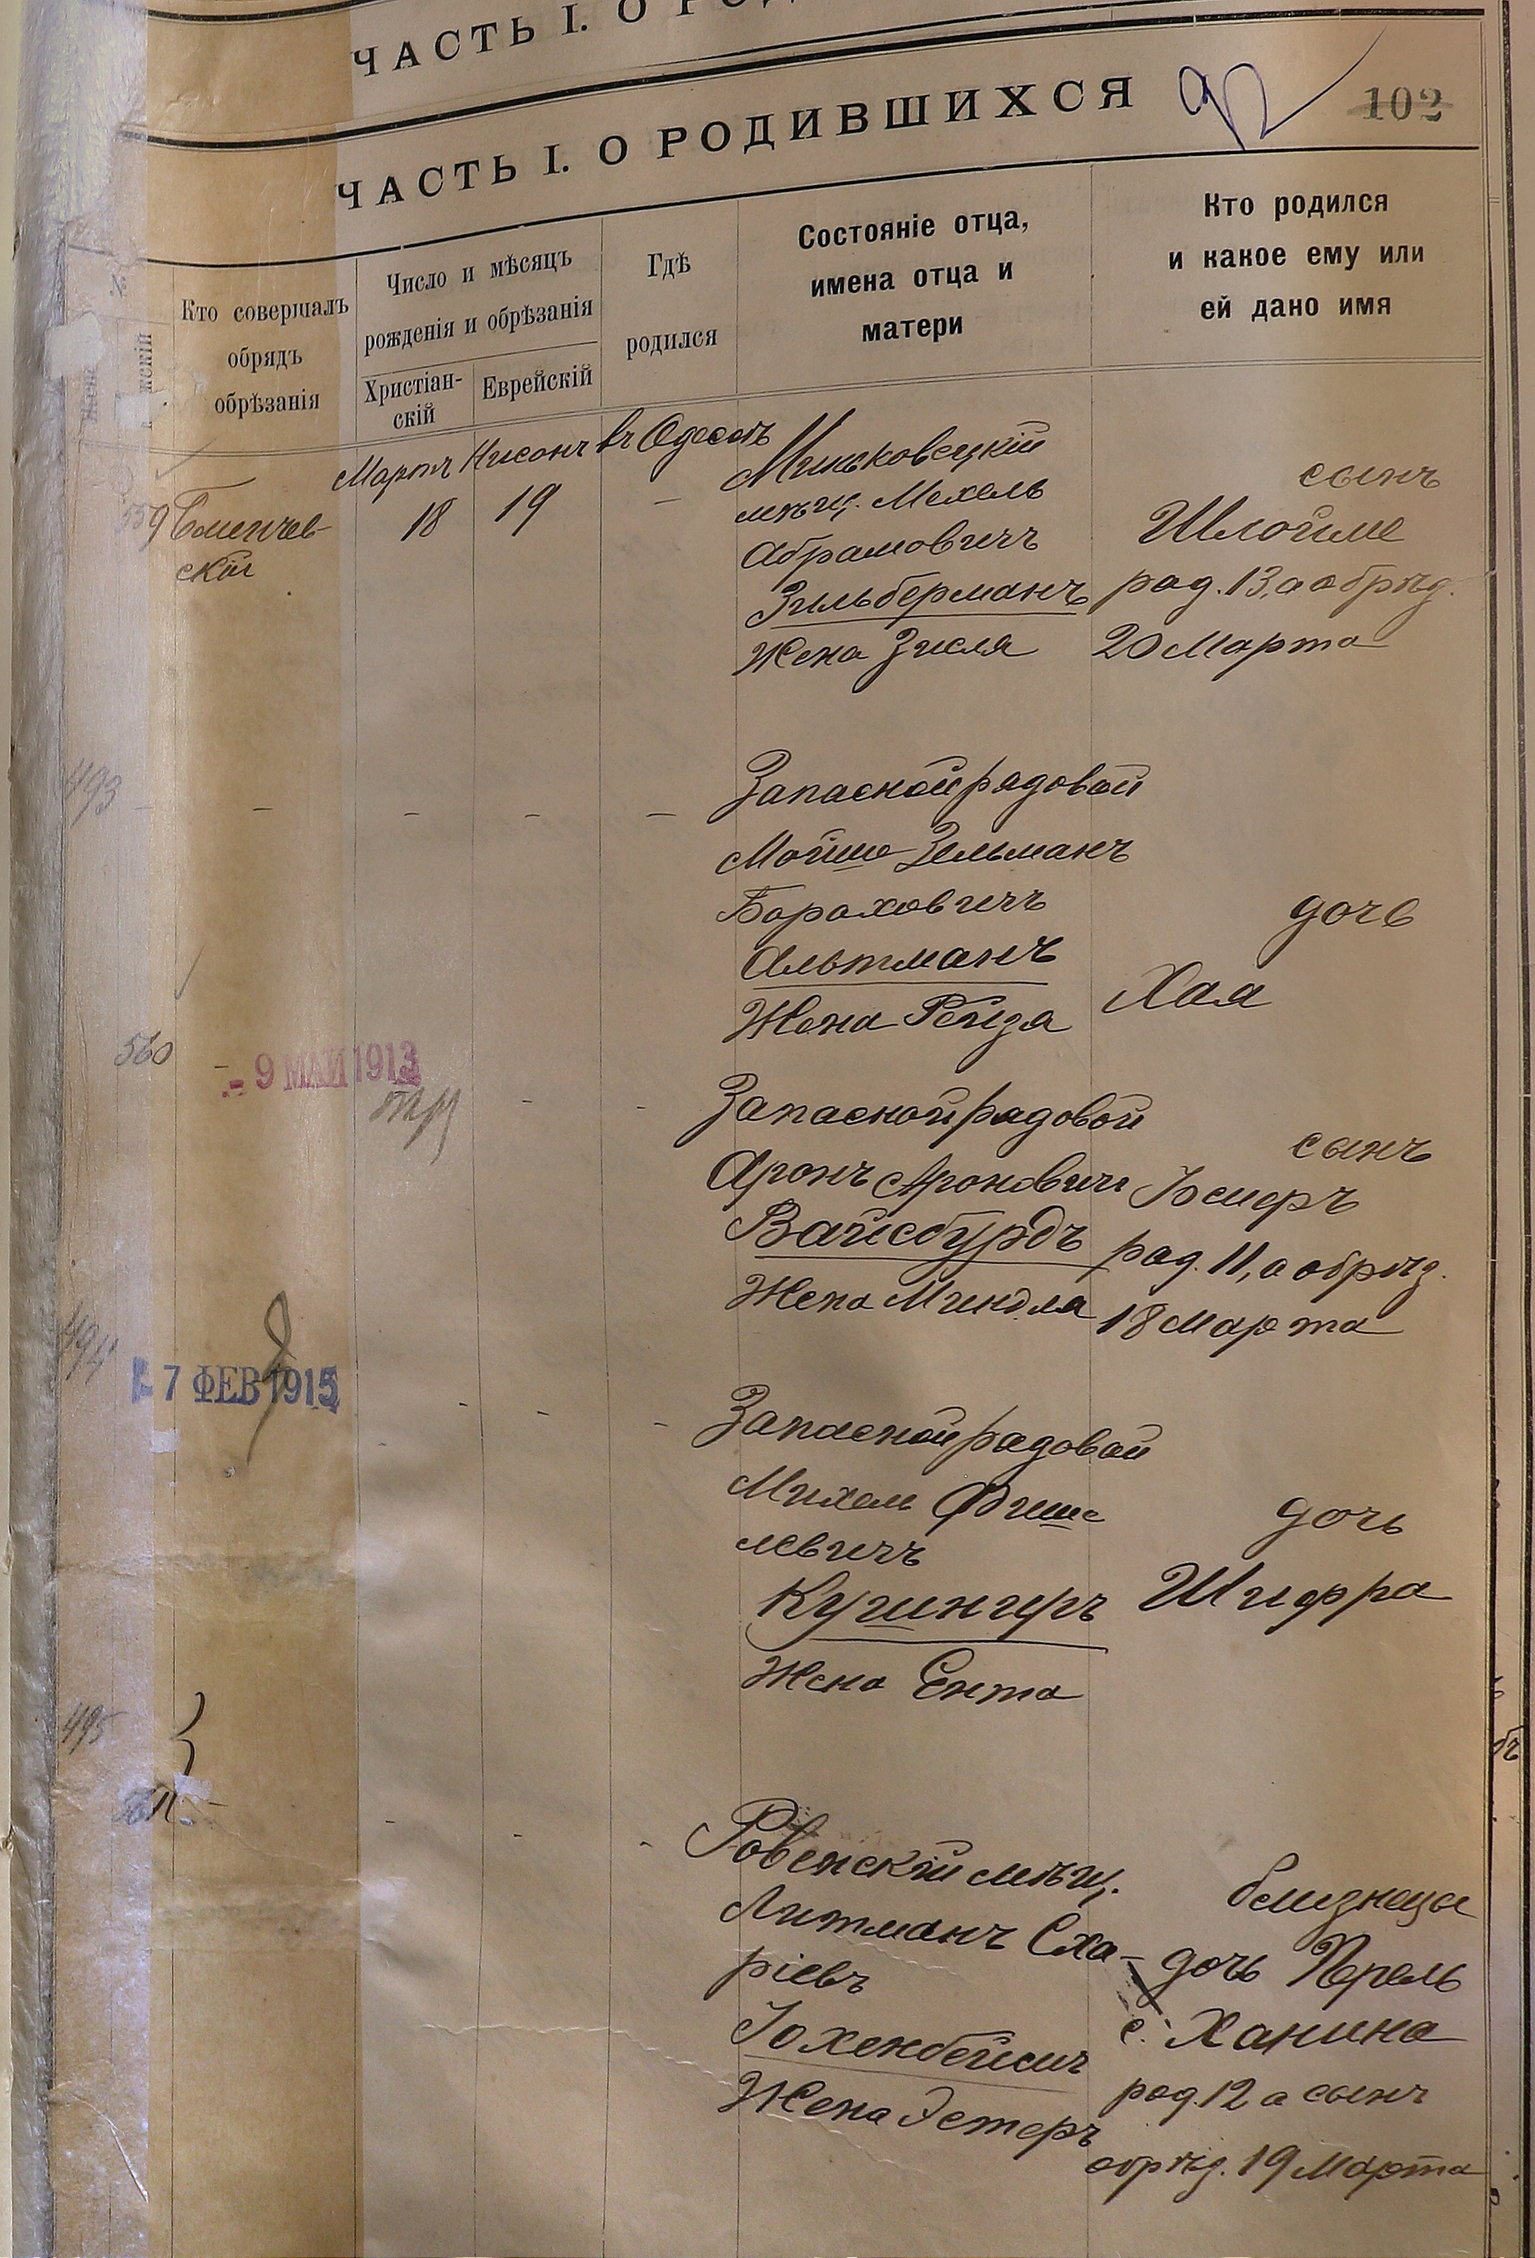 ЧАСТЬ I. О РОД
ЧАСТЬ I. О РОДИВШИХСЯ
92
102
№
Кто совершалъ
обрядъ
обрѣзанія
Число и мѣсяцъ
рожденія и обрѣзанія
Христіан-
скій
Еврейскій
Гдѣ
родился
Состояніе отца,
имена отца и
матери
Кто родился
и какое ему или
ей дано имя
Мартъ Нисонъ въ Одессѣ
559
скій
18
19
Миньковецкій
мѣщ. Мехель
Абрамовичъ
Зильберманъ
Жена Зисля
сынъ
Шлойме
род. 13, а обрѣз.
20 Марта
493
Запасной рядовой
Мойше Зельманъ
Бороховичъ
Альтманъ
Жена Рейза
дочь
Хая
560
- 9 МАЙ 1913
Запасной рядовой
Аронъ Ароновичъ
Вайсбурдъ
Жена Миндля
сынъ
род. 11, а обрѣз.
18 Марта
494
- 7 ФЕВ 1915
Запасной рядовой
Михель Фише
левичъ
Кушниръ
Жена Ента
дочь
Шифра
495
Ровенскій мѣщ.
Литманъ Сха-
ріевъ
Жена Эстеръ
близнецы
дочь Перель
с. Ханина
род. 12 а сынъ
обрѣз. 19 Марта